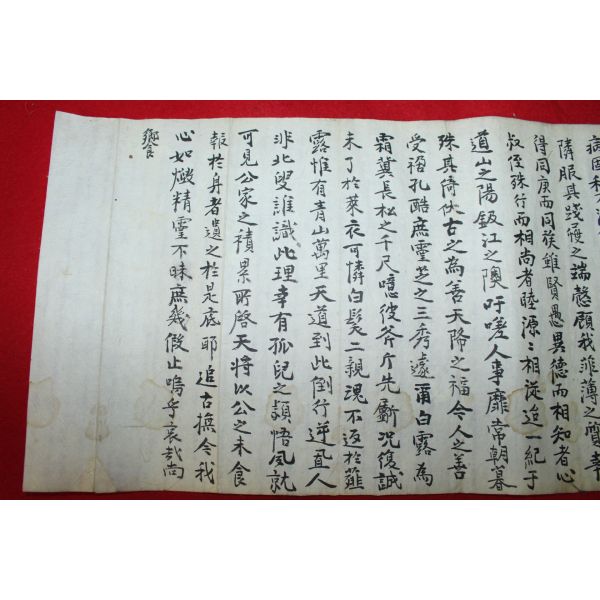 隣服其踐履之端慤顧我菲薄之質幸
得同庚而同族雖賢愚異德而相知者心
叔侄殊行而相尚者睦源源相從迨一紀于
道山之陽鈒江之隩吁嗟人事靡常朝暮
殊其倚伏古之為善天降之福今人之善
受禍孔酷庶靈芝之三秀遽爾白露為
霜冀長松之千尺噫彼斧斤先斲况復誠
未了於萊衣可憐白髮二親魂不返於薤
露惟有青山萬里天道到此倒行逆且人
非北叟誰識此理幸有孤兒之頴悟夙就
可見公家之積累所啓天將以公之未食
報於身者遺之於是庶耶追古撫今我
心如燬精靈不昧庶幾假止嗚乎哀哉尚
饗